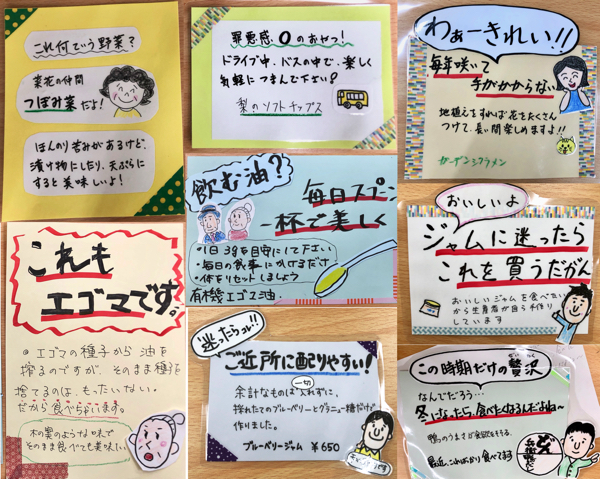 これ何ていう野菜?
菜花の仲間
つぼみ菜だよ!
ほんのり苦みがあるけど、
漬け物にしたり、天ぷらに
すると美味しいよ!
罪悪感、0のおやつ!
ドライブ中、バスの中で、楽しく
気軽につまんで下さい?
梨のソフトチップス
わぁーきれい!!
毎年咲いて
手がかからない
地植えをすれば花をたくさん
つけて、長い間楽しめますよ!!
ガーデンシクラメン
これも
エゴマです。
エゴマの種子から油を
搾るのですが、そのまま種子を
捨てるのは、もったいない。
だから食べちゃいます。
木の実のような味で
そのまま食べても美味しい
飲む油?
毎日スプーン
一杯で美しく
・1日3gを目安にして下さい
・毎日の食事にかけるだけ
・体をリセットしましょう
有機エゴマ油
おいしいよ
ジャムに迷ったら
これを買うだがん
おいしいジャムを食べたい
から生産者が自ら手作り
しています
迷ったらコレ!!
ご近所に配りやすい!
余計なものは一切入れずに、
採れたてのブルーベリーとグラニュー糖だけで
作りました。
ブルーベリージャム ¥650
この時期だけの贅沢
ぜいたく
なんでだろう…
冬になったら、食べたくなるんだよね~
鴨のうまさが食欲をそそる
最近、こればかり食べてます